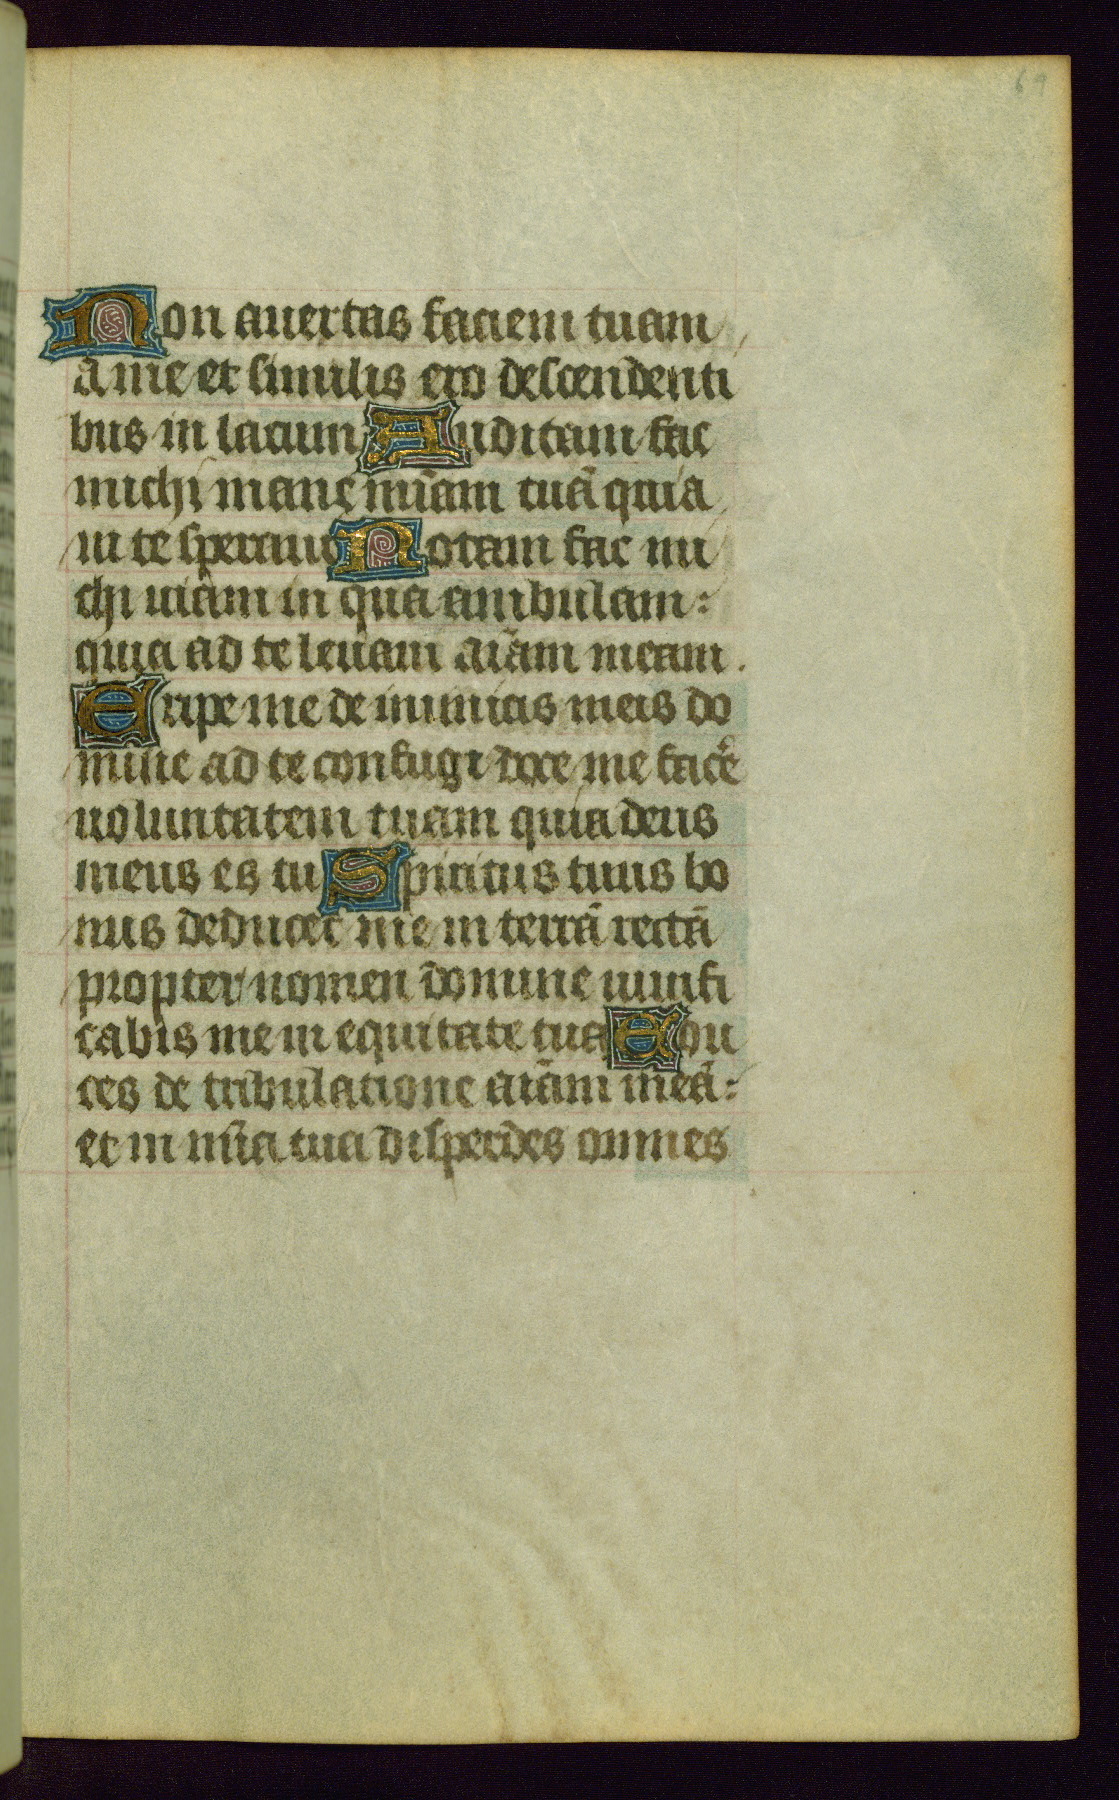 69
Non auertas faciem tuam
a me et similis ero descendenti
bus in lacum Auditam fac
michi mane mi̅am tua̅ quia
in te speraui Notam fac mi
chi uiam in qua ambulam:
quia ad te leuam ai̅am meam.
Eripe me de inimicis meis do
mine ad te confugi doce me face̅
uoluntatem tuam quia deus
meus es tu Spiritus tuus bo
nus deducet me in terra̅ recta̅
propter nomen domine uiuifi
cabis me in equitate tua Edu
ces de tribulatione ai̅am mea̅:
et in mi̅a tua disperdes omnes